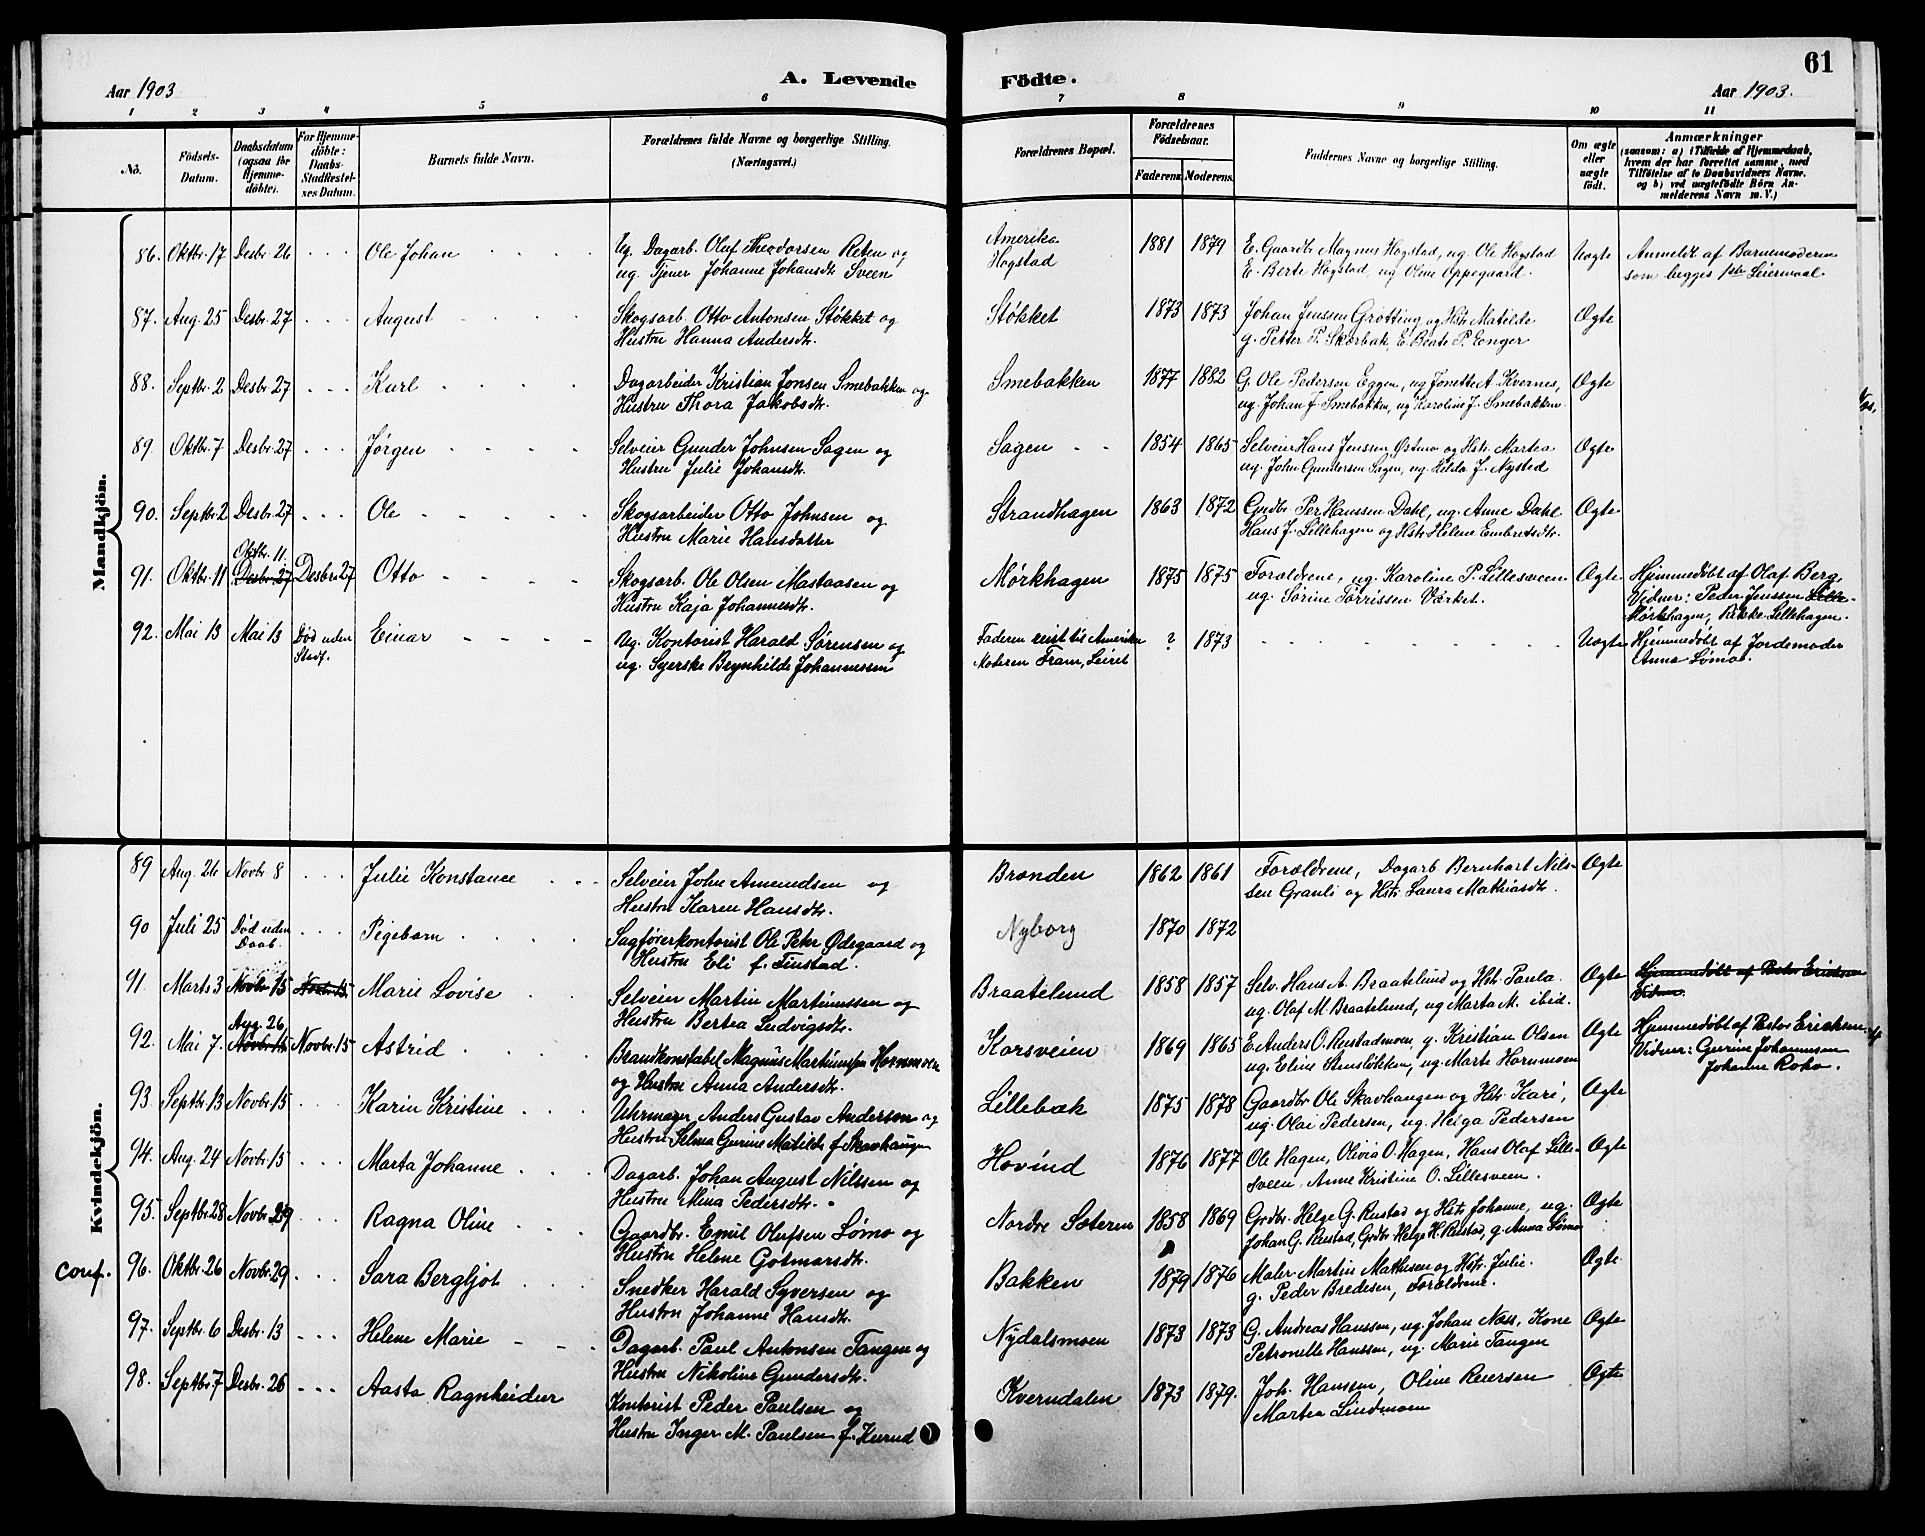 61
Aar 1903
A. Levende
Födte.
Aar 1903.
1 2 3 4 5 6 7 8 9 10 11
No.
Födsels-Datum.
Daabsdatum (ogsaa for Hjemme-döbte).
For Hjemme-döbte: Daabs-Stadfæstel-ses Datum.
Barnets fulde Navn.
Forældrenes fulde Navne og borgerlige Stilling. (Næringsvei.)
Forældrenes Bopæl.
Forældrenes Födselsaar.
Faderens Moderens
Faddernes Navne og borgerlige Stilling.
Om ægte eller uægte födt.
Anmærkninger
(saasom: a) i Tilfælde af Hjemmedaab, hvem der har forrettet samme, med Tilföielse af to Daabsvidners Navne, og b) ved uægtefödte Börn Anmelderens Navn m. V.)
Mandkjön.
86. Oktbr. 17 Desbr. 26 Ole Johan Ug. Dagarb. Olaf Theodorsen Reten og Amerika 1881 1879 E. Gaardbr Magnus Hogstad, ug. Ole Hogstad Uægte Anmeldt af Barnemoderen
ug. Tjener Johanne Johansdtr Sveen Hogstad E. Berte Hogstad, ug Oline Oppegaard. som begges 1ste Leiermaal.
87. Aug. 25 Desbr. 27 August Skogsarb. Otto Antonsen Støkket og Støkket 1873 1873 Johan Jenssen Grøtting og Hstr Matilde Ægte
Hustru Hanna Andersdtr. g. Petter P. Skærbæk, E. Beate P. Enger
88. Septbr. 2 Desbr. 27 Karl Dagarbeider Kristian Jonsen Smebakken og Smebakken 1877 1882 G. Ole Pedersen Eggen, ug Jonette A. Kvernes, Ægte
Hustru Thora Jakobsdtr. ug. Johan J. Smebakken, ug Karoline J. Smebakken
89. Oktbr. 7 Desbr. 27 Jørgen Selveier Gunder Johnsen Sagen og Sagen 1854 1865 Selveier Hans Jenssen Østmo og Hstr. Martea Ægte
Hustru Julie Johansdtr. ug. John Gundersen Sagen, ug. Hilda J. Nysted
90. Septbr. 2 Desbr. 27 Ole Skogsarbeider Otto Johnsen og Strandhagen 1863 1872 Grdbr. Per Hanssen Dahl, ug. Anne Dahl Ægte
Hustru Marie Hansdatter Hans J. Lillehagen og Hstr Helene Embretsdtr.
Oktbr. 11.
91. Oktbr. 11 Desbr. 27 Desbr. 27 Otto Skogsarb. Ole Olsen Mastaasen og Mørkhagen 1875 1875 Forældrene, ug. Karoline P. Lillesveen Ægte Hjemmedøbt af Olaf Berg
Hustru Kaja Johannesdtr. ug. Sørine Torrissen Værket. Vidner: Peder Jenssen Lille-
Mørkhagen, Rikke Lillehagen.
92. Mai 13 Mai 13 Død uden Stadf. Einar Ug. Kontorist Harald Sørensen og Faderen reist til Amerika ? 1873 Uægte Hjemmedøbt af Jordemoder
ug. Syerske Brynhilde Johannessen Moderen Fram, Leiret Anna Lømo.
Kvindekjön.
89 Aug. 26 Novbr. 8 Julie Konstance Selveier John Amundsen og Brønden 1862 1861 Forældrene, Dagarb Bernhart Nils- Ægte
Hustru Karen Hansdtr. sen Granli og Hstr Laura Mathiasdtr.
90 Juli 25 Død uden Daab. Pigebarn Sagførerkontorist Ole Petr Ødegaard og Nyborg 1870 1872
Hustru Eli f. Finstad.
91. Marts 3 Novbr. 15 Novbr. 15 Marie Lovise Selveier Martin Martinussen og Braatelund 1858 1857 Selv. Hans A. Braatelund og Hstr Paula Ægte Hjemmedøbt af Pastor Erichsen
Hustru Bertea Ludvigsdtr. ug. Olaf M. Braatelund, ug Marta M. ibid. Vidner
Aug. 26
92. Mai 7. Novbr. 15 Novbr. 15 Astrid Brandkonstabel Magnus Martinussen Hornmoen Korsveien 1869 1865 E. Anders O. Rustadmoen, g. Kristian Olsen Ægte Hjemmedøbt af Pastor Erichsen
og Hustru Anna Andersdtr. ug. Eline Stensløkken, ug. Marte Hornmoen Vidner: Gurine Johannesen
Johanne Roko.
93. Septbr. 13 Novbr. 15 Karin Kristine Uhrmager Anders Gustav Andersen og Lillebæk 1875 1878 Gaardbr Ole Skavhaugen og Hstr Kari, Ægte
Hustru Selma Gurine Matilde f. Skavhaugen ug. Olai Pedersen, ug. Helga Pedersen
94. Aug. 24 Novbr. 15 Marta Johanne Dagarb. Johan August Nilssen og Hovind 1876 1877 Ole Hagen, Olivia O. Hagen, Hans Olaf Lille- Ægte
Hustru Mina Pedersdtr. sveen, Anne Kristine O. Lillesveen.
95. Septbr. 28 Novbr. 29 Ragna Oline Gaardbr. Emil Olufsen Lømo og Nordre Sæteren 1858 1869 Grdbr. Helge G. Rustad og Hstr Johanne, ug. Ægte
Hustru Helene Gotmarsdtr. Johan G. Rustad, Grdbr Helge H. Rustad, g Anna Lømo
conf. 96. Oktbr. 26 Novbr. 29 Sara Bergljot Snedker Harald Syversen og Bakken 1879 1876 Maler Martin Mathesen og Hstr. Julie. Ægte
Hustru Johanne Hansdtr. g. Peder Bredesen, Forældrene.
97. Septbr. 6 Desbr. 13 Helene Marie Dagarb. Paul Antonsen Tangen og Nydalsmoen 1873 1873 G. Andreas Hanssen, ug. Johan Næss, Kone Ægte
Hustru Nikoline Gundersdtr. Petronelle Hanssen, ug. Marie Tangen
98. Septbr. 7 Desbr. 26 Aasta Ragnheidur Kontorist Peder Paulsen og Kverndalen 1873 1879. Joh. Hanssen, Oline Reiersen Ægte
Hustru Inger M. Paulsen f. Kurud Martea Lindmoen